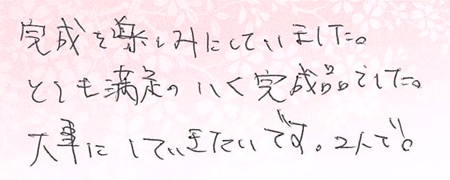 完成を楽しみにしていました。
とても満足のいく完成品でした。
大事にしていきたいです。2人で。